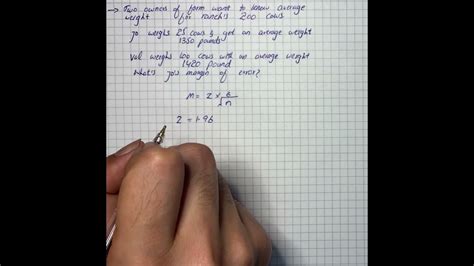 → Two owners of farm want to know average
weight for ranch's 200 cows
Jo weighs 25 cows & get an average weight
1350 pounds
Val weighs 100 cows with an average weight
1420 pound
What's Jo's margin of error?
M = Z × σ/√n
Z = 1.96